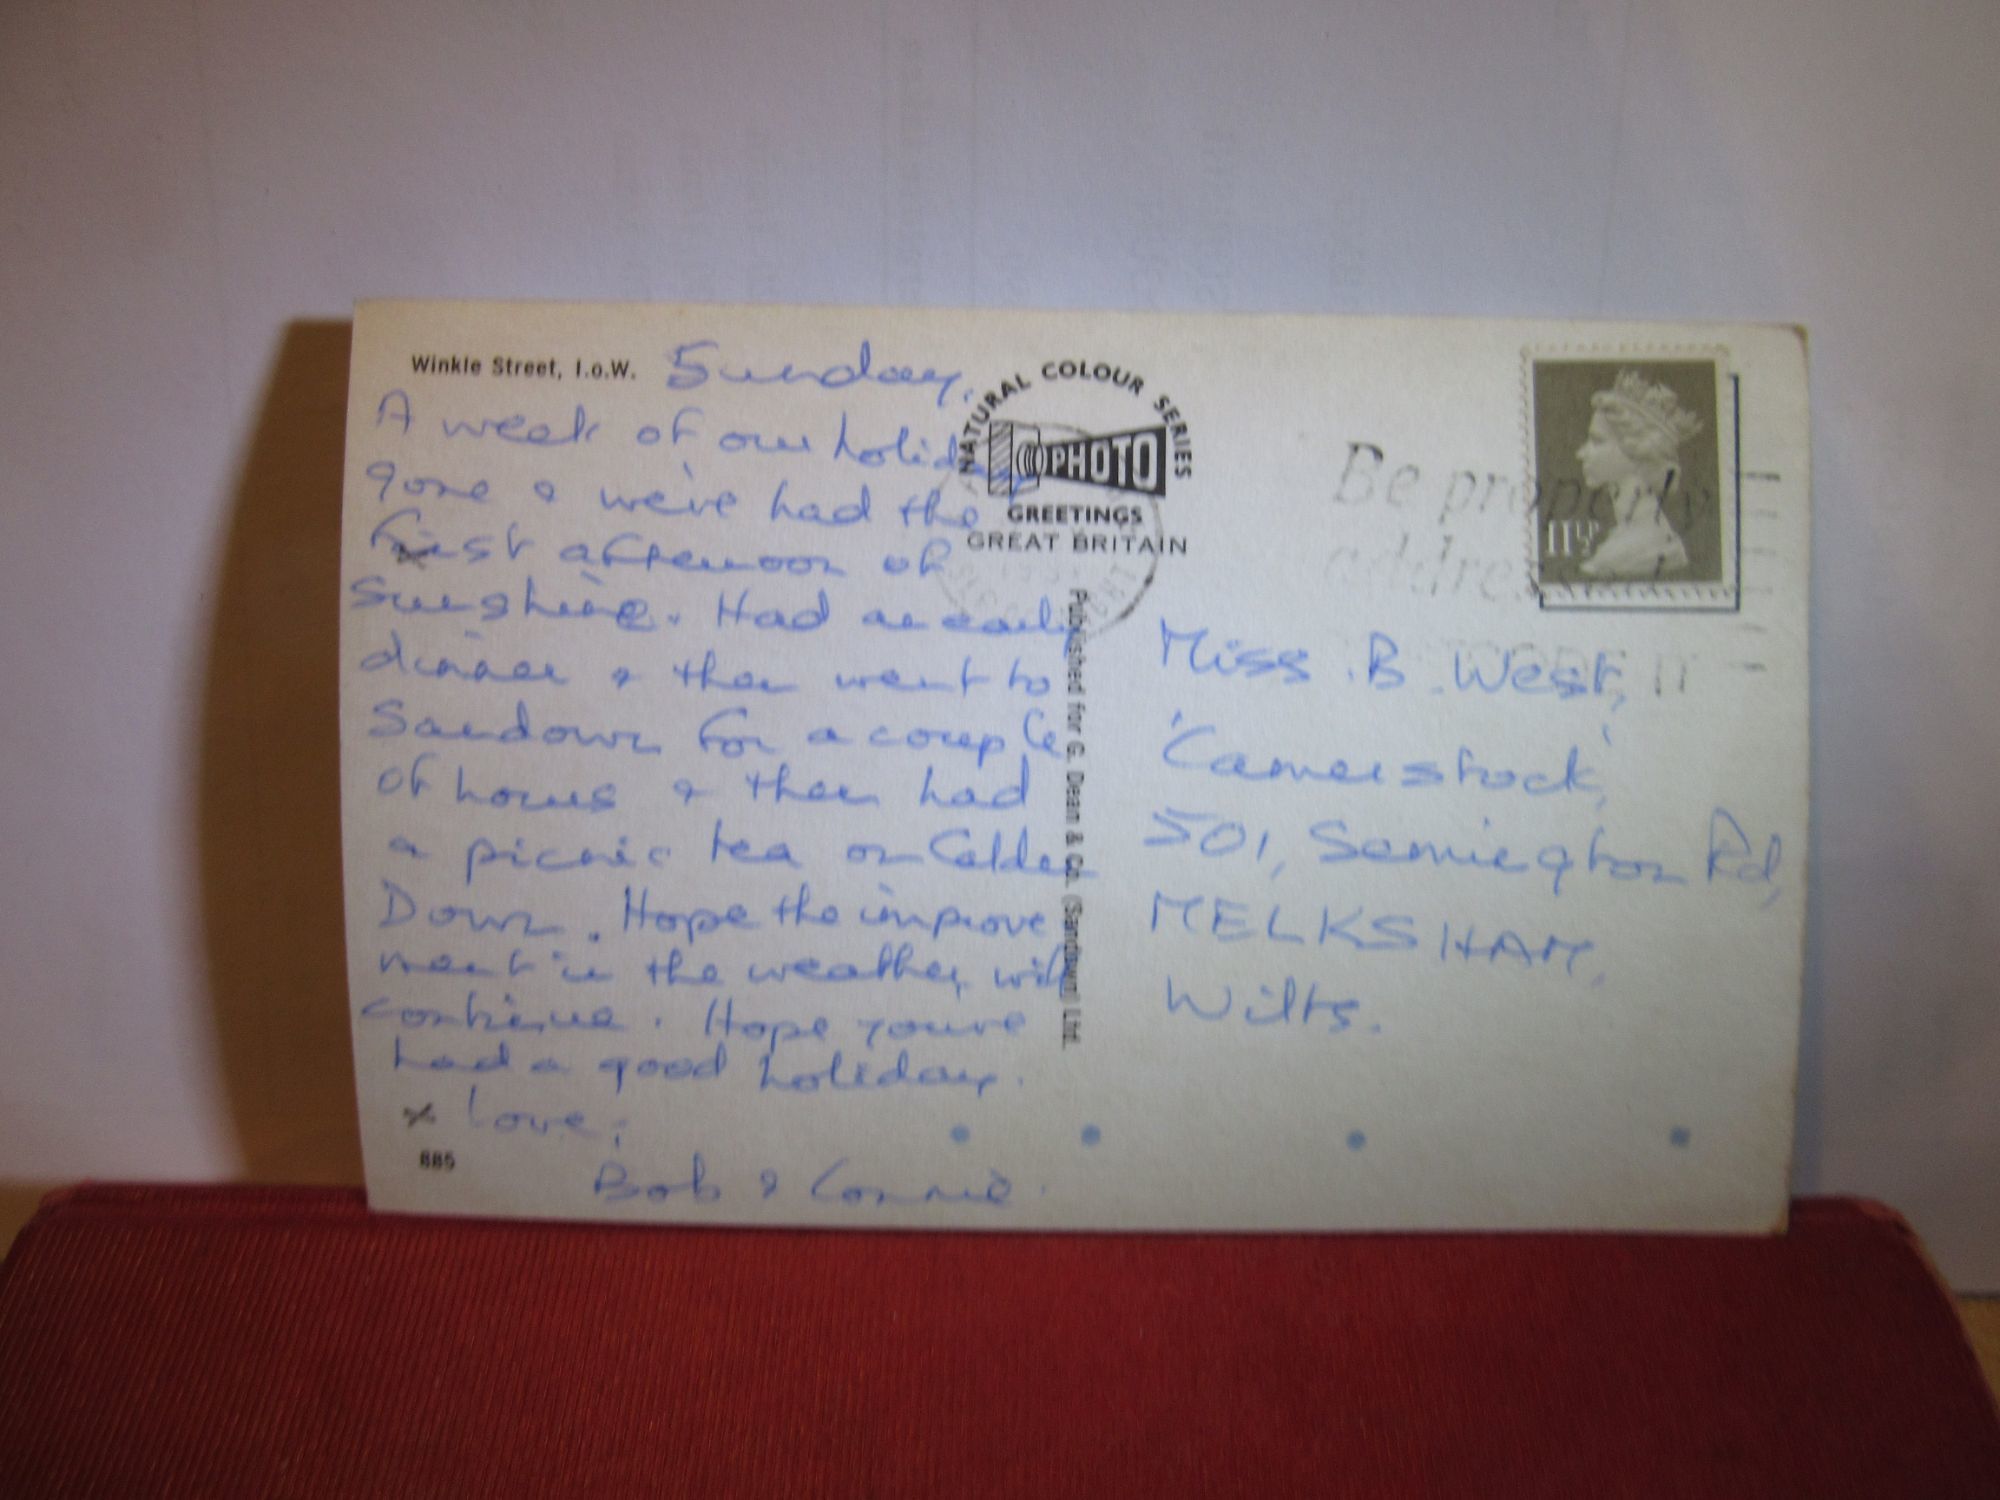 Winkle Street, I.o.W.
Sunday.
A week of our holiday
gone & we've had the
first afternoon of
sunshine. Had an early
dinner & then went to
Sandown for a couple
of hours & then had
a picnic tea on
Down. Hope the improve
ment in the weather will
continue. Hope you've
had a good holiday.
x Love,
Bob & Connie.
885
NATURAL COLOUR SERIES
PHOTO
GREETINGS
GREAT BRITAIN
Published for G. Dean & Co. (Sandown) Ltd.
Be properly
addressed
11½P
Miss B. West,
501, Semington Rd,
MELKSHAM,
Wilts.